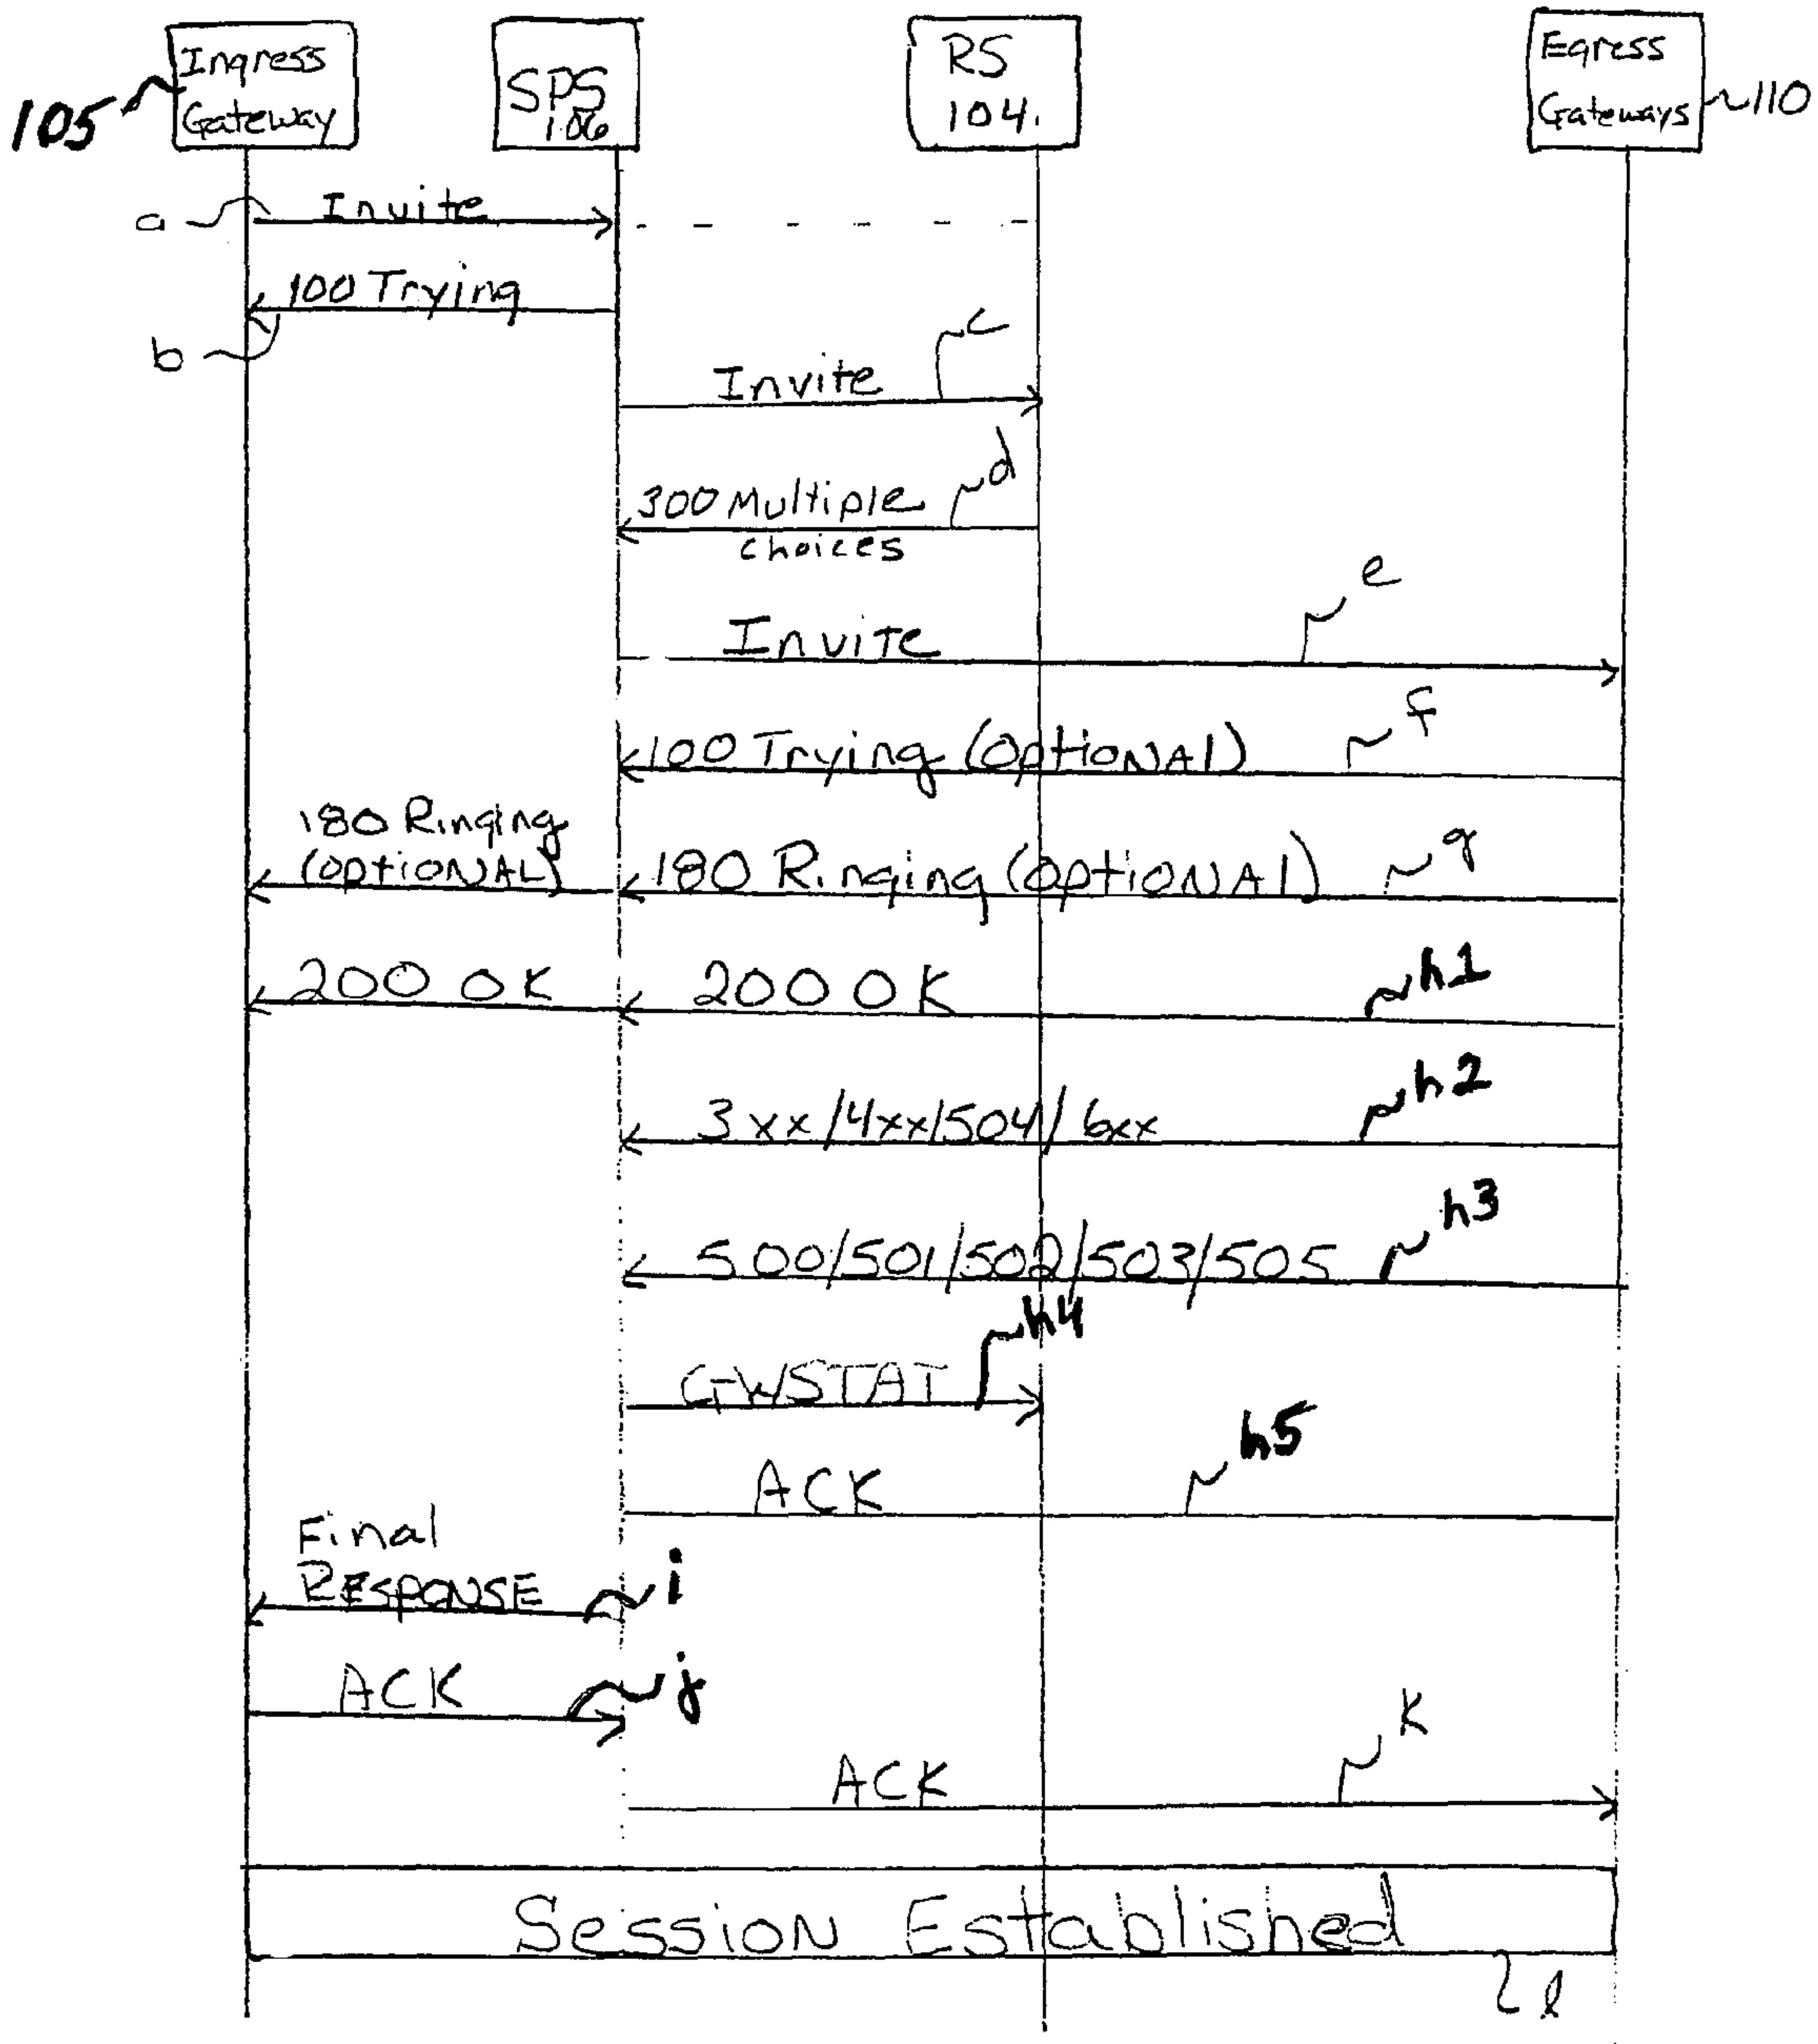 Ingress
Gateway
105
SPS
106
RS
104.
Egress
Gateways
110
a
Invite
100 Trying
b
c
Invite
d
300 Multiple
choices
e
Invite
f
100 Trying (OptiONAl)
180 Ringing
(OptiONAL)
180 Ringing (OptiONAl)
g
200 OK
200 OK
h1
h2
3xx/4xx/504/6xx
h3
500/501/502/503/505
h4
GWSTAT
h5
ACK
Final
RESPONSE
i
ACK
j
k
ACK
Session Established
l